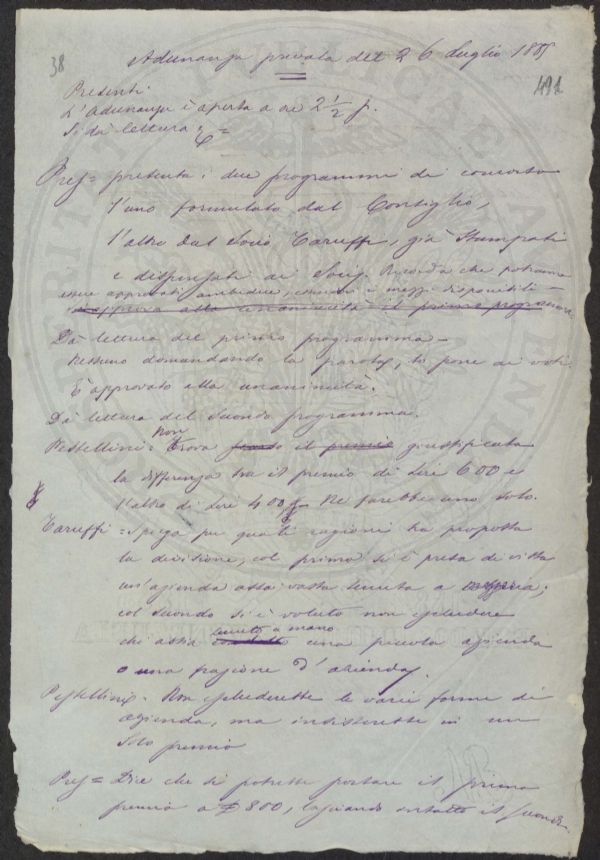 38
Adunanza privata del 26 Luglio 1885
491
Presenti
L'Adunanza è aperta a ore 2 1/2 p.
Si dà lettura &=
Pres= presenta i due programmi di concorso
l'uno formulato dal Consiglio,
l'altro dal Socio Caruffi, già stampati
e dispensati ai Socj. Ricorda che potranno
essere approvati ambidue, essendo i mezzi disponibili —
approva alla unanimità il primo programma
Dà lettura del primo programma —
Nessuno domandando la parola, lo pone ai voti.
È approvato alla unanimità.
Dà lettura del secondo programma.
Pestellini = Non trova il premio giustificata
la differenza tra il premio di Lire 600 e
l'altro di Lire 400, Ne farebbe uno solo.
Caruffi = Spiega per quali ragioni ha proposta
la divisione, col primo si è presa di vista
un'azienda assai vasta tenuta a
col secondo si è voluto non escludere
chi abbia tenuto a mano una piccola azienda
o una frazione d'azienda.
Pestellini = Non escluderebbe le varie forme di
azienda, ma insisterebbe in un
solo premio
Pres= Dice che si potrebbe portare il primo
premio a £ 800, lasciando intatto il secondo.